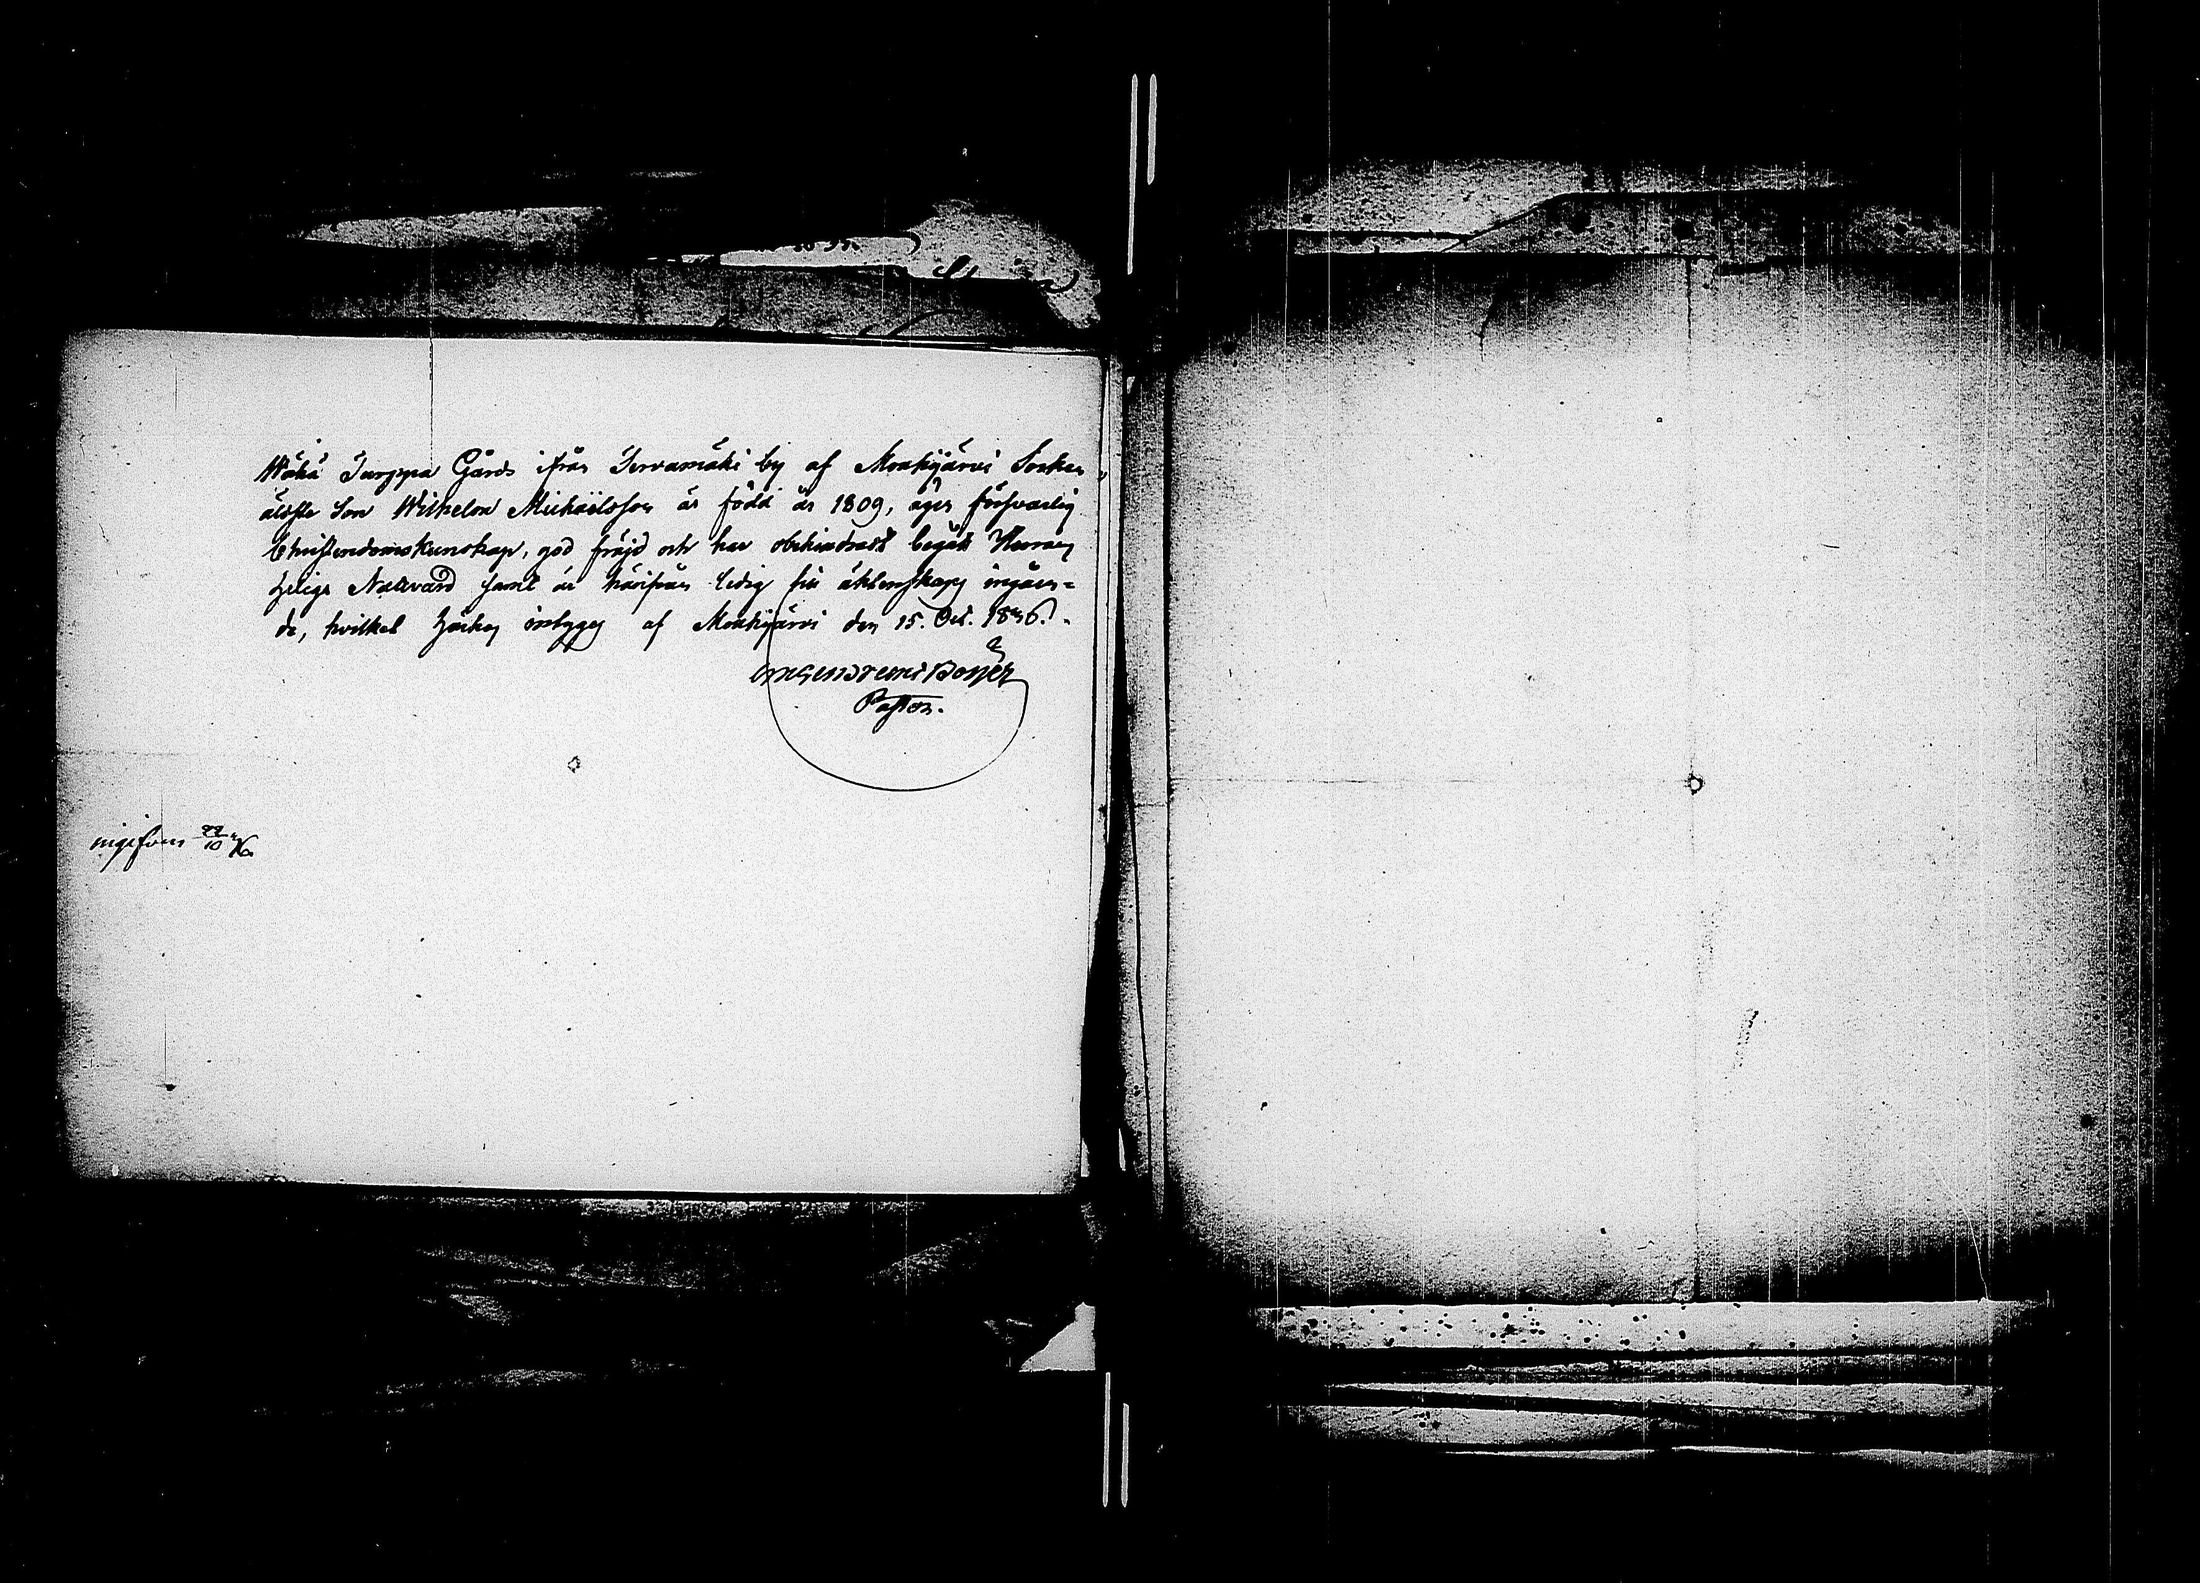 Wähä Jurppa Gårds ifrån Jervamäki by af Mouhijärvi Socken
äldste Son Wilhelm Michaëlsson är född år 1809, äger försvarlig
Christendomskunskap, god fräjd och har obehindradt begått Herrans
Helige Nattvard samt är härifrån ledig till äktenskaps ingåen=
de, hvilket härhos intygas af Mouhijärvi den 15. Oct. 1836.
Pastor.
22/10 36.